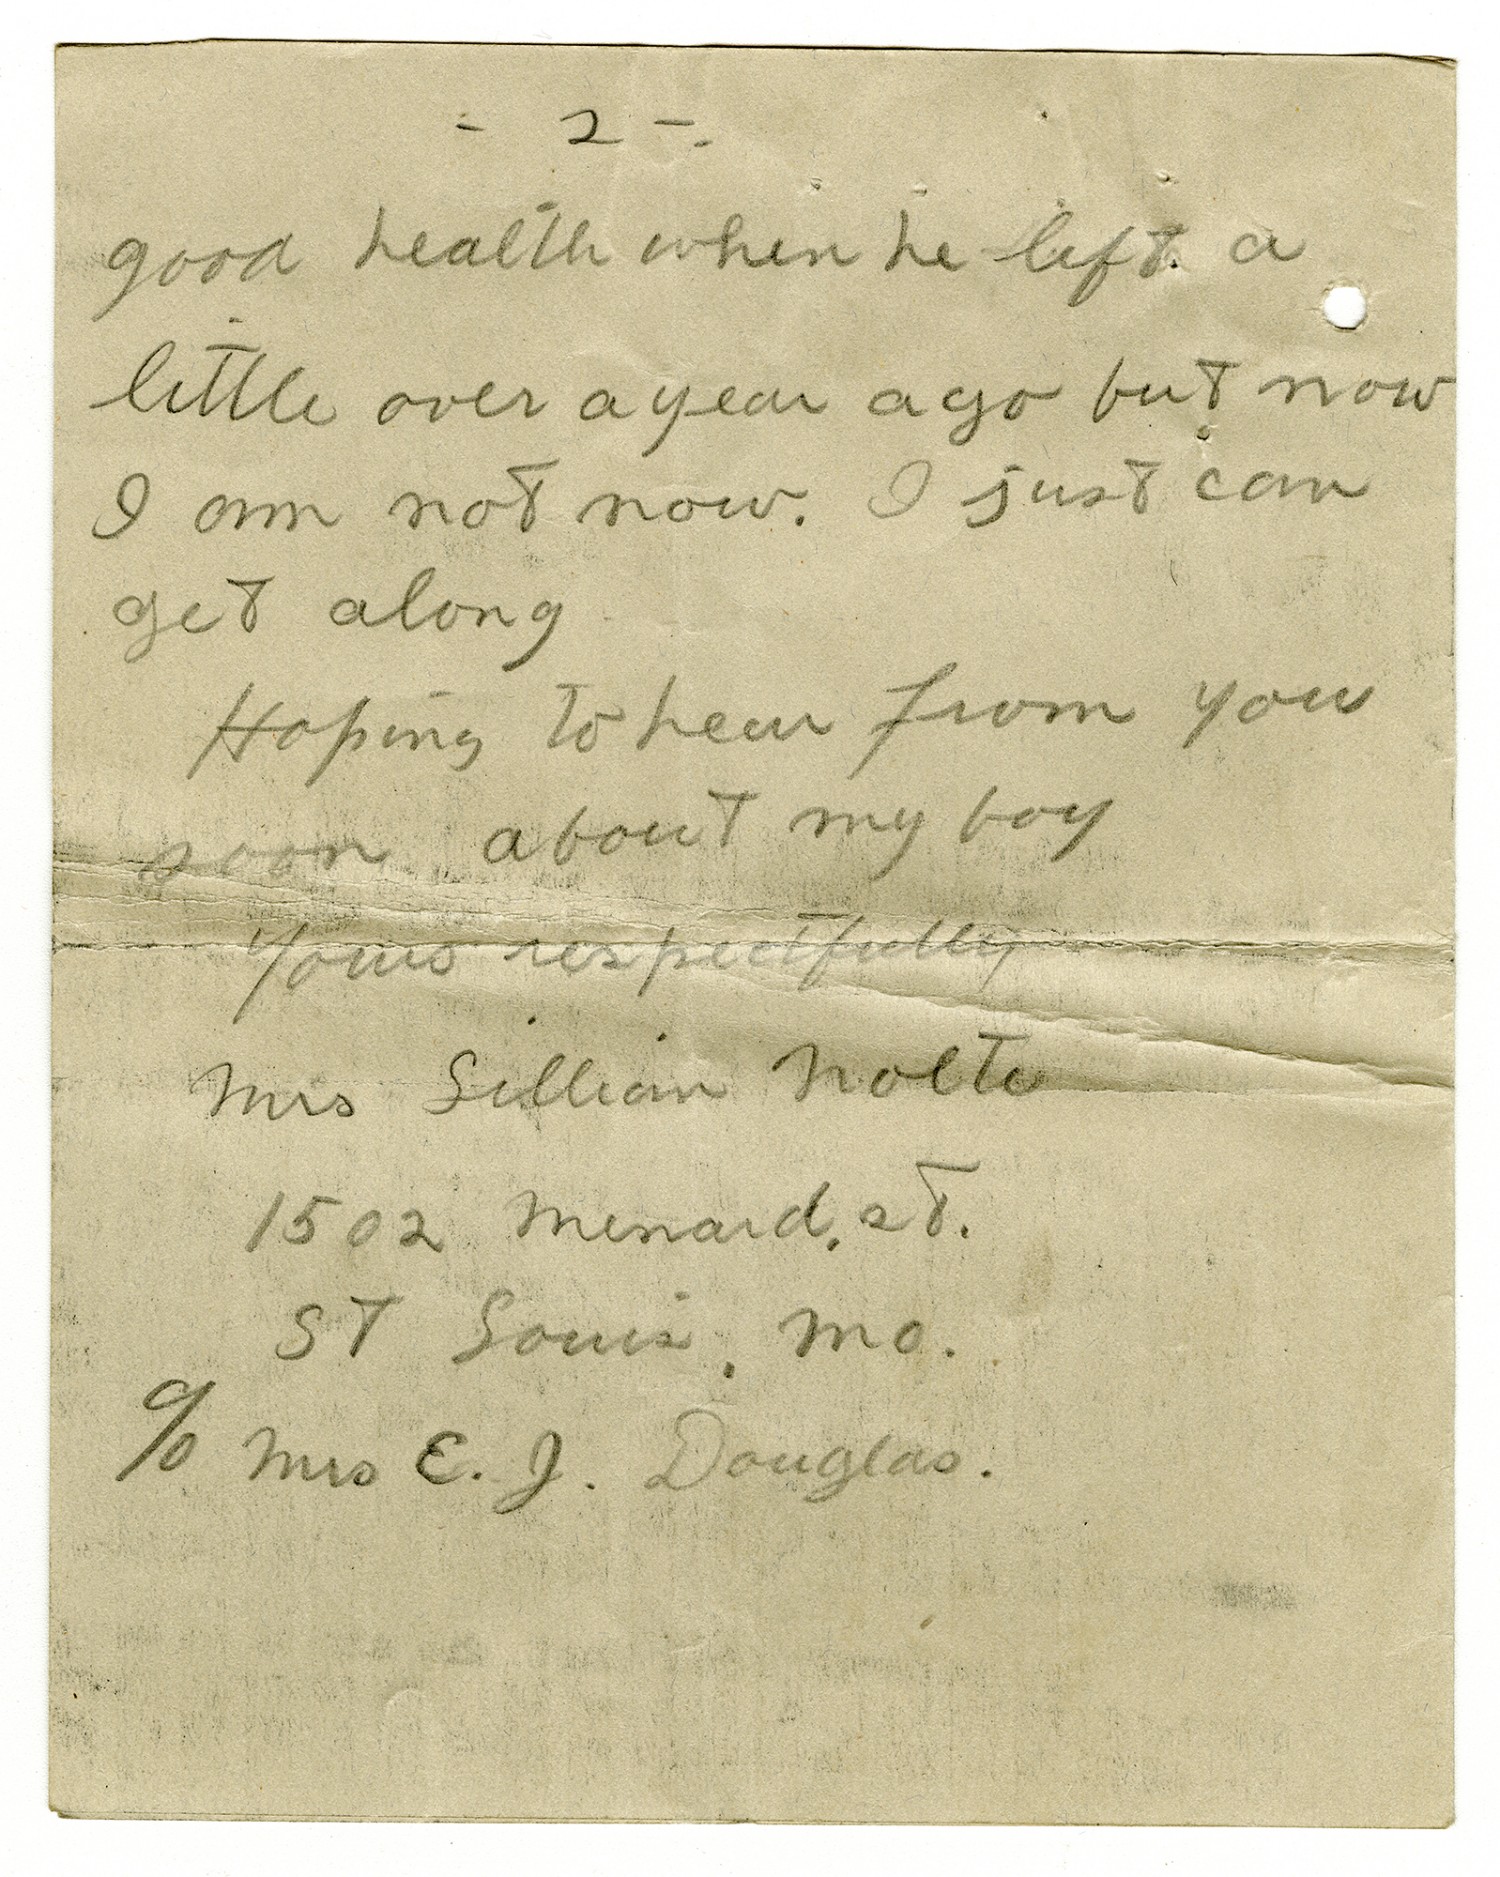 - 2 -.
good health when he left. a
little over a year ago but now
I am not now. I just can
get along
Hoping to hear from you
soon about my boy
Yours respectfully
Mrs Lillian Nolte
1502 Menard. st.
St Louis, Mo.
c/o Mrs E. J. Douglas.